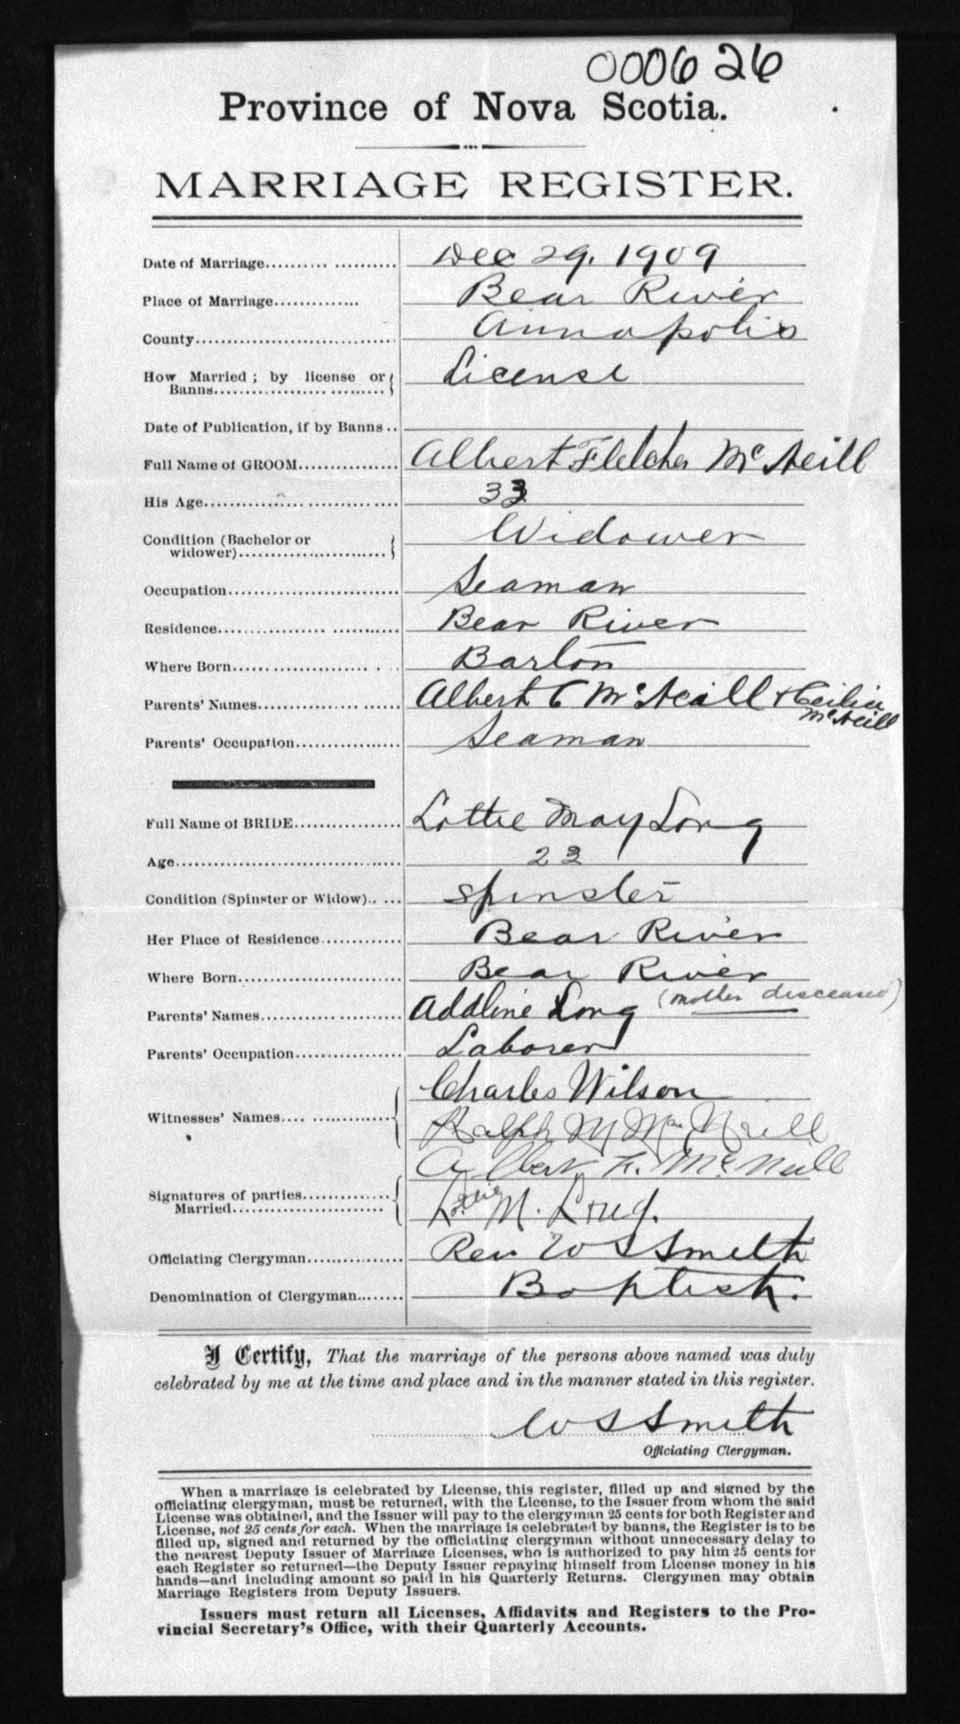 000626
Province of Nova Scotia.
MARRIAGE REGISTER.
Date of Marriage Dec 29. 1909
Place of Marriage Bear River
County Annapolis
How Married ; by license or Banns License
Date of Publication, if by Banns
Full Name of GROOM Albert Fletcher McNeill
His Age 33
Condition (Bachelor or widower) Widower
Occupation Seaman
Residence Bear River
Where Born Barton
Parents' Names Albert C McNeill & Ceilia McNeill
Parents' Occupation Seaman
Full Name of BRIDE Lottie May Long
Age 23
Condition (Spinster or Widow) Spinster
Her Place of Residence Bear River
Where Born Bear River
Parents' Names Addline Long (mother disceased)
Parents' Occupation Laborer
Witnesses' Names Charles Wilson
Ralph M McNeill
Signatures of parties Married Albert F. McNeill
Lottie M. Long.
Officiating Clergyman Rev W S Smith
Denomination of Clergyman Baptist.
I Certify, That the marriage of the persons above named was duly
celebrated by me at the time and place and in the manner stated in this register.
W S Smith
Officiating Clergyman.
When a marriage is celebrated by License, this register, filled up and signed by the
officiating clergyman, must be returned, with the License, to the Issuer from whom the said
License was obtained, and the Issuer will pay to the clergyman 25 cents for both Register and
License, not 25 cents for each. When the marriage is celebrated by banns, the Register is to be
filled up, signed and returned by the officiating clergyman without unnecessary delay to
the nearest Deputy Issuer of Marriage Licenses, who is authorized to pay him 25 cents for
each Register so returned—the Deputy Issuer repaying himself from License money in his
hands—and including amount so paid in his Quarterly Returns. Clergymen may obtain
Marriage Registers from Deputy Issuers.
Issuers must return all Licenses, Affidavits and Registers to the Pro-
vincial Secretary's Office, with their Quarterly Accounts.